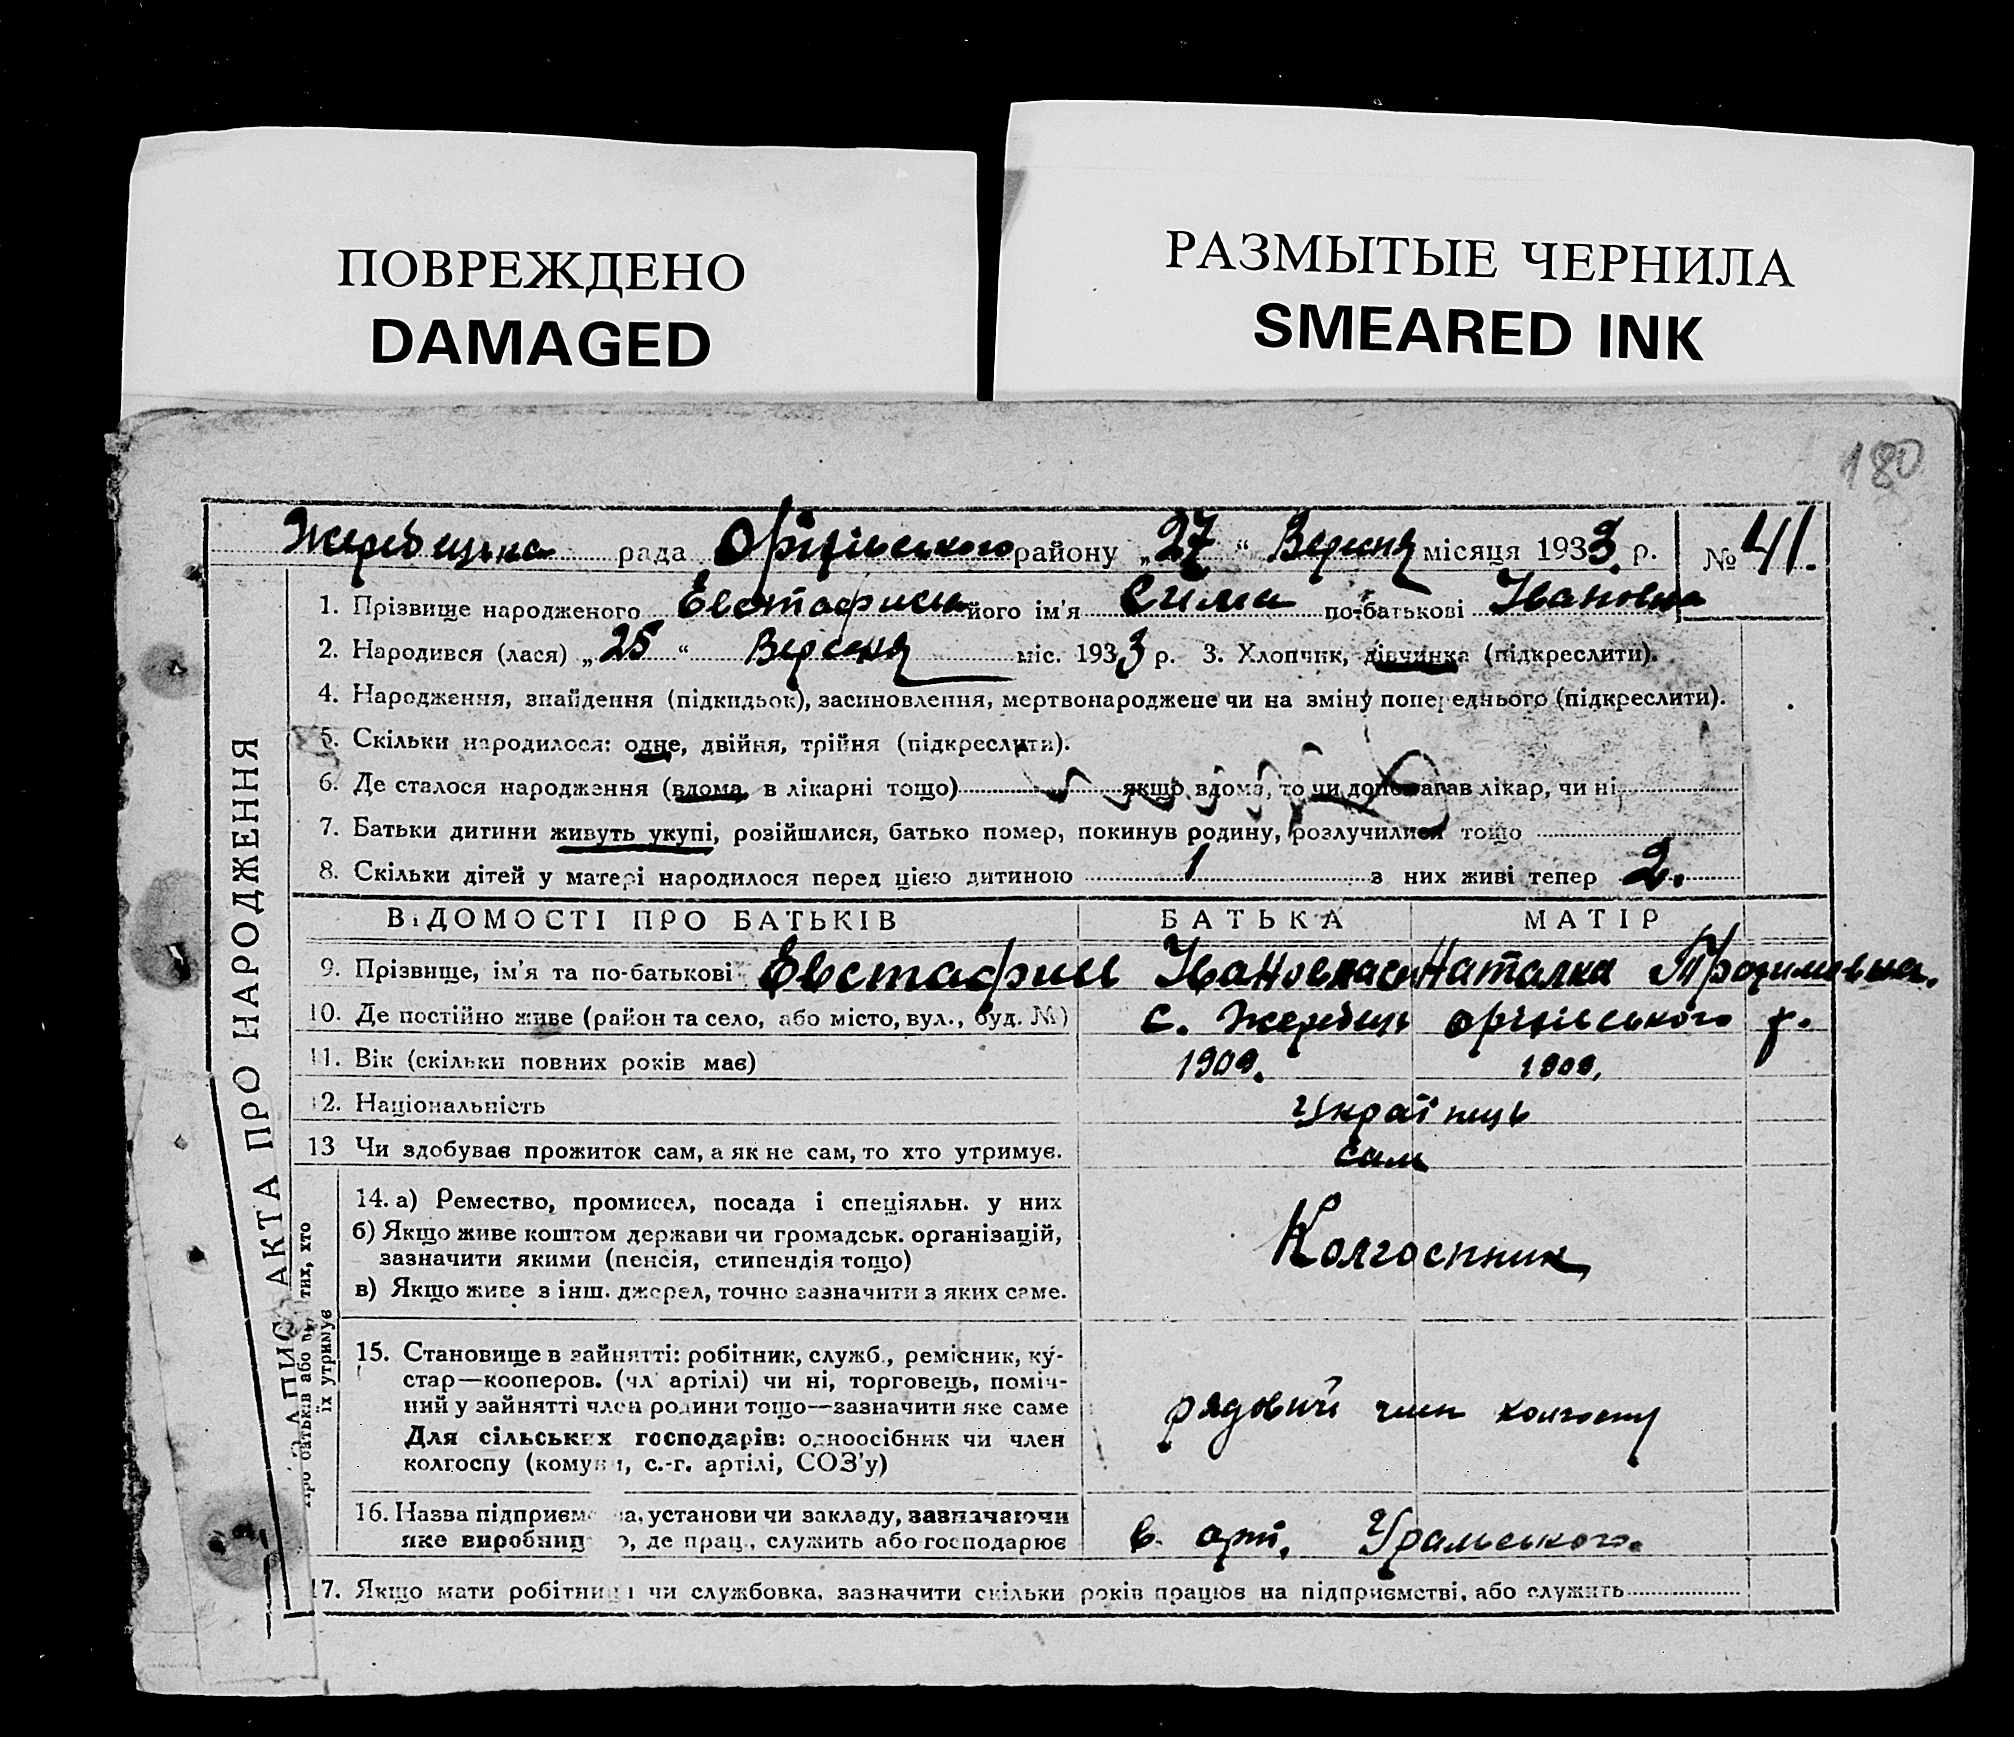 ПОВРЕЖДЕНО
DAMAGED
РАЗМЫТЫЕ ЧЕРНИЛА
SMEARED INK
180
Жеребецька рада Оріхівського району „27“ Вересня місяця 1933 р. № 41.
1. Прізвище народженого Евстафиєв його ім'я Сима по-батькові Івановна
2. Народився (лася) „25“ Вересня міс. 1933 р. 3. Хлопчик, дівчинка (підкреслити).
4. Народження, знайдення (підкидьок), засиновлення, мертвонароджене чи на зміну попереднього (підкреслити).
5. Скільки народилося: одне, двійня, трійня (підкреслити).
6. Де сталося народження (вдома, в лікарні тощо) якщо вдома, то чи допомагав лікар, чи ні,
7. Батьки дитини живуть укупі, розійшлися, батько помер, покинув родину, розлучилися тощо
8. Скільки дітей у матері народилося перед цією дитиною 1 з них живі тепер 2.
ЗАПИС АКТА ПРО НАРОДЖЕННЯ
ВІДОМОСТІ ПРО БАТЬКІВ БАТЬКА МАТІР
9. Прізвище, ім'я та по-батькові Евстафиєв Наталка
10. Де постійно живе (район та село, або місто, вул., буд. №) с. Жеребець Оріхівського р.
11. Вік (скільки повних років має) 1909. 1909.
12. Національність Українець
13 Чи здобуває прожиток сам, а як не сам, то хто утримує. Сам
їх утримує
14. а) Ремество, промисел, посада і спеціяльн. у них
б) Якщо живе коштом держави чи громадськ. організацій,
зазначити якими (пенсія, стипендія тощо)
Колгоспник
в) Якщо живе з інш. джерел, точно зазначити з яких саме.
15. Становище в зайнятті: робітник, служб., ремісник, ку-
стар—кооперов. (чл артілі) чи ні, торговець, поміч-
ний у зайнятті член родини тощо—зазначити яке саме
рядовий член колгоспу
Для сільських господарів: одноосібник чи член
колгоспу (комуни, с.-г. артілі, СОЗ'у)
16. Назва підприємства, установи чи закладу, зазначаючи
яке виробництво, де прац., служить або господарює в. арт.
17. Якщо мати робітниця чи службовка, зазначити скільки років працює на підприємстві, або служить